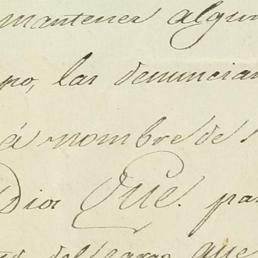 mantener algun
po, las denuncian
á nombre de
Dios Que. pa
del cargo que